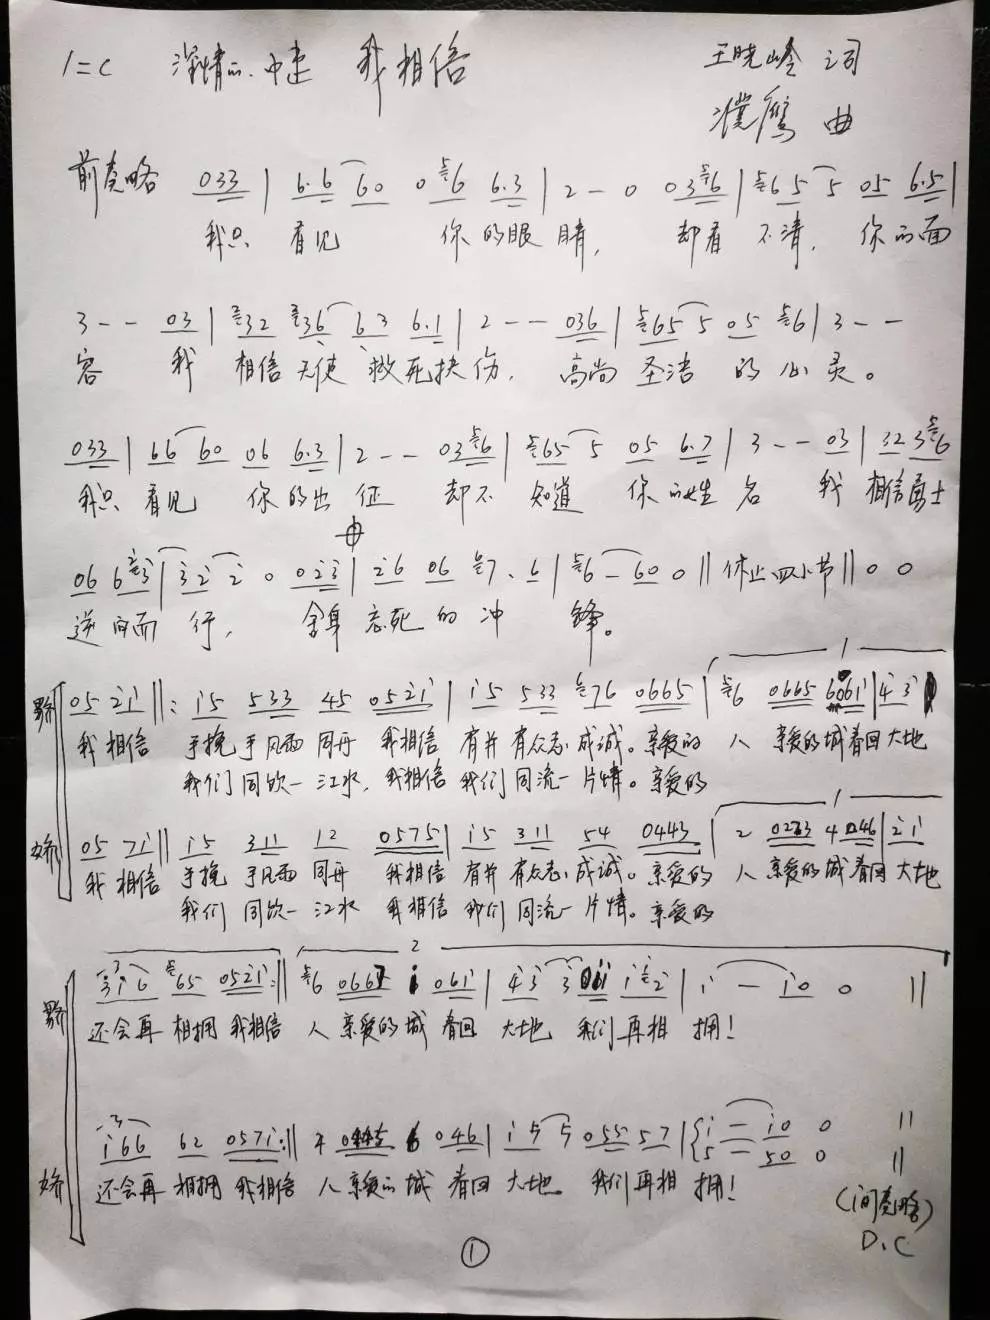 1=C 深情的 中速 我相信 王晓岭 词
濮 曲
前奏略 033 | 6.6 60 0 6 6.3 | 2 - 0 036 | 65 5 05 6.5 |
我只 看见 你的眼 睛， 却看 不清， 你的面
3 - - 03 | 32 36 63 6.1 | 2 - - 036 | 65 5 05 6 | 3 - -
容 我 相信天使 救死扶伤， 高尚 圣洁 的心灵。
033 | 66 60 06 6.3 | 2 - - 036 | 65 5 05 6.7 | 3 - - 03 | 32 36
我只 看见 你的出 征 却不 知道 你的姓 名 我 相信勇士
06 63 | 32 2 0 023 | 26 06 7. 6 | 6 - 60 0 || 休止四小节 || 0 0
逆向而 行， 舍身 忘死的冲 锋。
05 21 ||: 15 533 45 0521 | 15 533 76 0665 | 6 0665 6061 | 43
我相信 手挽 手风雨 同舟 我相信 有并 有众志 成诚。亲爱的 人 亲爱的城看回大地
我们 同饮一 江水， 我相信 我们 同流一 片情。亲爱的
05 71 || 15 311 12 0575 | 15 311 54 0443 | 2 0223 4 046 | 21
我相信 手挽 手风雨 同舟 我相信 有并 有众志 成诚。亲爱的 人 亲爱的城看回大地
我们 同饮一 江水 我相信 我们 同流一 片情。亲爱的
316 65 0521 :|| 6 0667 1 061 | 43 3 011 12 | 1 - 10 0 ||
还会再 相拥 我相信 人 亲爱的城 看回 大地 我们再相 拥！
166 62 0571 :|| 4 6 046 | 15 5 055 57 | 1 - 10 0 ||
5 - 50 0 ||
还会再 相拥 我相信 人 亲爱的城 看回 大地 我们再相 拥！
(间奏略)
D.C
①